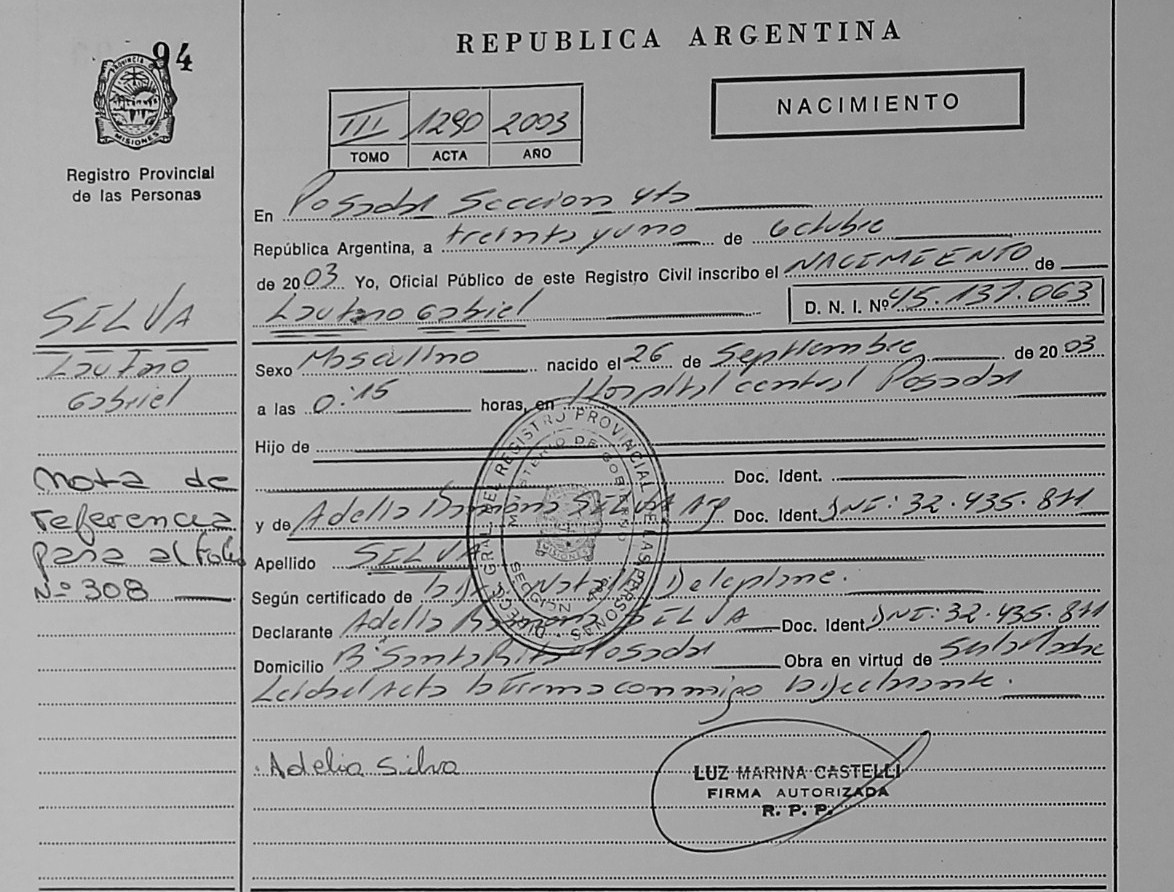 94
REPUBLICA ARGENTINA
PROVINCIA DE MISIONES
Registro Provincial
de las Personas
III 1290 2003
TOMO ACTA AÑO
NACIMIENTO
En Posadas Seccion 4ta
República Argentina, a treinta y uno de Octubre
de 2003 Yo, Oficial Público de este Registro Civil inscribo el NACIMIENTO de
Lautaro Gabriel D. N. I. Nº 45.137.063
SILVA
Lautaro
Gabriel
Sexo Masculino nacido el 26 de Septiembre de 2003
a las 0:15 horas, en Hospital central Posadas
Hijo de
Doc. Ident.
y de Adelia Ramona SILVA Arg Doc. Ident. DNI: 32.435.811
Apellido SILVA
Según certificado de Natalia Deleplane.
Declarante Adelia Ramona SILVA Doc. Ident. DNI: 32.435.811
Domicilio Bº Santa Rita Posadas Obra en virtud de
Leida el Acta la firma conmigo la declarante.
nota de
referencia
para al folio
Nº 308
DIREC. GRAL. DEL REGISTRO PROVINCIAL DE LAS PERSONAS
MINISTERIO DE GOBIERNO
MISIONES
SECCION 4ta
Adelia Silva
LUZ MARINA CASTELLI
FIRMA AUTORIZADA
R. P. P.